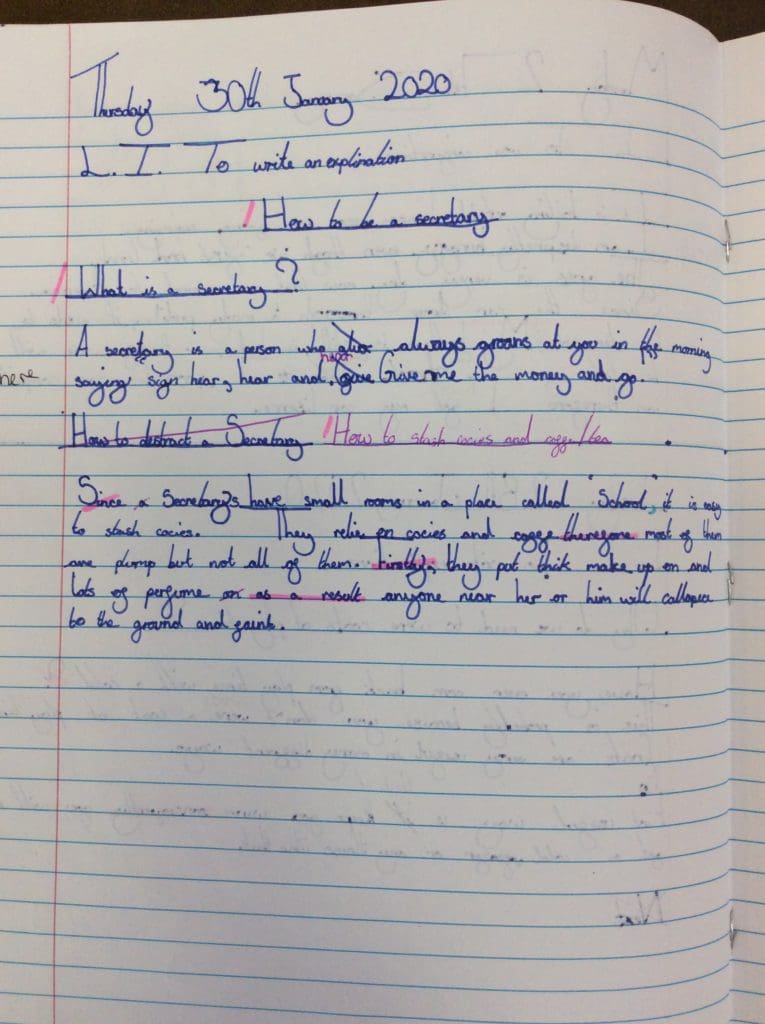 Thursday 30th January 2020
L.I. To write an explination
How to be a secretary
What is a secretary?
A secretary is a person who always groans at you in the morning
here
saying sign hear, hear and, Give me the money and go.
How to distract a Secretary How to stash cocies and coffe/tea
Since a Secretary's have small rooms in a place called "School", it is easy
to stash cocies. They relie on cocies and coffe therefore most of them
are plump but not all of them. Firstly, they put thik make up on and
lots of perfume as a result anyone near her or him will callapse
to the ground and faint.